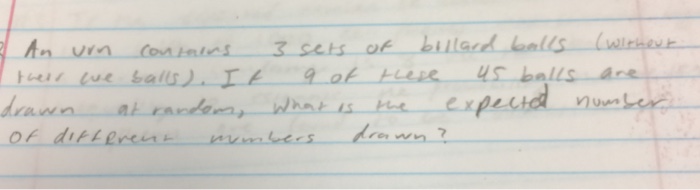 An urn contains 3 sets of billard balls (without
their cue balls). If 9 of these 45 balls are
drawn at random, what is the expected number
of different numbers drawn?